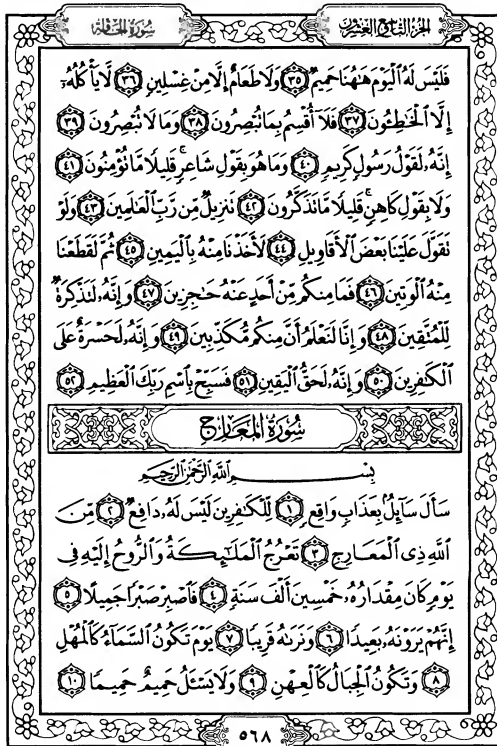 الجزء التاسع والعشرون
سورة الحاقة
فَلَيْسَ لَهُ ٱلْيَوْمَ هَٰهُنَا حَمِيمٌ ﴿٣٥﴾ وَلَا طَعَامٌ إِلَّا مِنْ غِسْلِينٍ ﴿٣٦﴾ لَّا يَأْكُلُهُۥٓ
إِلَّا ٱلْخَٰطِـُٔونَ ﴿٣٧﴾ فَلَآ أُقْسِمُ بِمَا تُبْصِرُونَ ﴿٣٨﴾ وَمَا لَا تُبْصِرُونَ ﴿٣٩﴾
إِنَّهُۥ لَقَوْلُ رَسُولٍ كَرِيمٍ ﴿٤٠﴾ وَمَا هُوَ بِقَوْلِ شَاعِرٍ ۚ قَلِيلًا مَّا تُؤْمِنُونَ ﴿٤١﴾
وَلَا بِقَوْلِ كَاهِنٍ ۚ قَلِيلًا مَّا تَذَكَّرُونَ ﴿٤٢﴾ تَنزِيلٌ مِّن رَّبِّ ٱلْعَٰلَمِينَ ﴿٤٣﴾ وَلَوْ
تَقَوَّلَ عَلَيْنَا بَعْضَ ٱلْأَقَاوِيلِ ﴿٤٤﴾ لَأَخَذْنَا مِنْهُ بِٱلْيَمِينِ ﴿٤٥﴾ ثُمَّ لَقَطَعْنَا
مِنْهُ ٱلْوَتِينَ ﴿٤٦﴾ فَمَا مِنكُم مِّنْ أَحَدٍ عَنْهُ حَٰجِزِينَ ﴿٤٧﴾ وَإِنَّهُۥ لَتَذْكِرَةٌ
لِّلْمُتَّقِينَ ﴿٤٨﴾ وَإِنَّا لَنَعْلَمُ أَنَّ مِنكُم مُّكَذِّبِينَ ﴿٤٩﴾ وَإِنَّهُۥ لَحَسْرَةٌ عَلَى
ٱلْكَٰفِرِينَ ﴿٥٠﴾ وَإِنَّهُۥ لَحَقُّ ٱلْيَقِينِ ﴿٥١﴾ فَسَبِّحْ بِٱسْمِ رَبِّكَ ٱلْعَظِيمِ ﴿٥٢﴾
سُورَةُ المَعَارِج
بِسْمِ ٱللَّهِ ٱلرَّحْمَٰنِ ٱلرَّحِيمِ
سَأَلَ سَآئِلٌۢ بِعَذَابٍ وَاقِعٍ ﴿١﴾ لِّلْكَٰفِرِينَ لَيْسَ لَهُۥ دَافِعٌ ﴿٢﴾ مِّنَ
ٱللَّهِ ذِى ٱلْمَعَارِجِ ﴿٣﴾ تَعْرُجُ ٱلْمَلَٰٓئِكَةُ وَٱلرُّوحُ إِلَيْهِ فِى
يَوْمٍ كَانَ مِقْدَارُهُۥ خَمْسِينَ أَلْفَ سَنَةٍ ﴿٤﴾ فَٱصْبِرْ صَبْرًا جَمِيلًا ﴿٥﴾
إِنَّهُمْ يَرَوْنَهُۥ بَعِيدًا ﴿٦﴾ وَنَرَىٰهُ قَرِيبًا ﴿٧﴾ يَوْمَ تَكُونُ ٱلسَّمَآءُ كَٱلْمُهْلِ
﴿٨﴾ وَتَكُونُ ٱلْجِبَالُ كَٱلْعِهْنِ ﴿٩﴾ وَلَا يَسْـَٔلُ حَمِيمٌ حَمِيمًا ﴿١٠﴾
٥٦٨